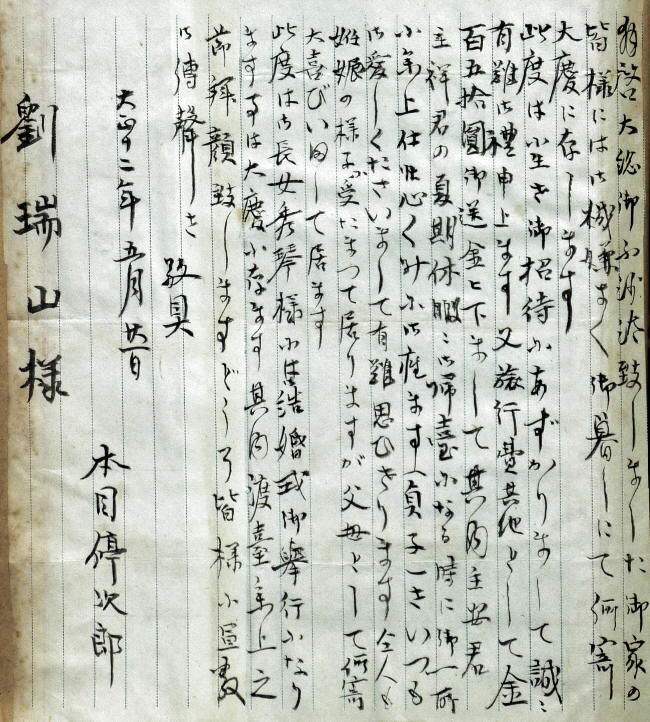 拝啓大変御不沙汰致しました御家の
皆様には御機嫌よく御暮しにて何寄
大慶に存じます
此度は小生を御招待にあずかりまして誠に
有難御禮申上ます又旅行費其他として金
百五拾圓御送金下まして其内主安君
主祥君の夏期休暇に御帰臺になる時に御一所
に参上仕
貞子をいつも
御愛しくださいまして有難思ひ
娠の様子に受たまつて居りますが父母として何寄
大喜びいたして居ます
此度は御長女秀琴様には結婚式御舉行になり
ます事は大慶に存ます其内渡臺参上之
節拜顔致しますどうぞ皆様に宜敷
御傳聲
敬具
大正十二年五月廿一日
本目傳次郎
劉瑞山様